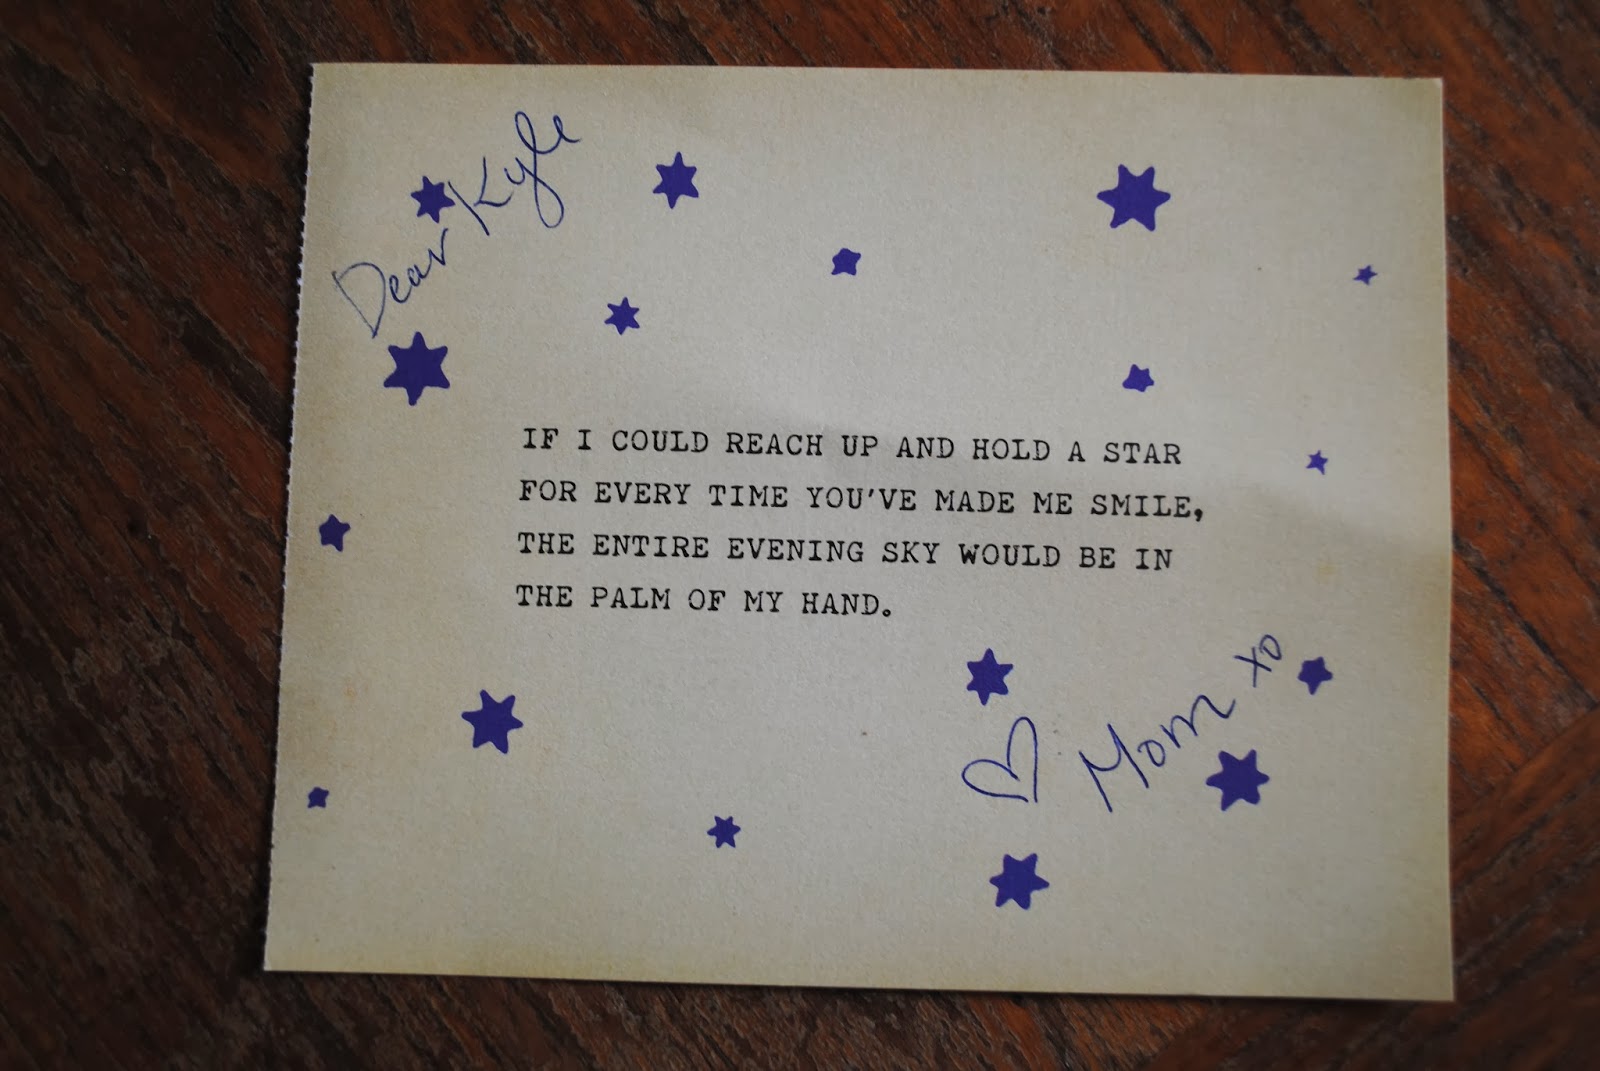 Dear Kyle
IF I COULD REACH UP AND HOLD A STAR
FOR EVERY TIME YOU'VE MADE ME SMILE,
THE ENTIRE EVENING SKY WOULD BE IN
THE PALM OF MY HAND.
♡ Mom xo